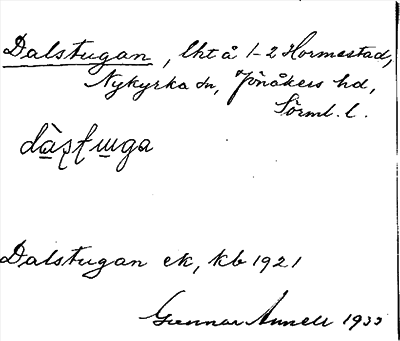 Dalstugan, lht å 1-2 Hormestad,
Nykyrka sn, Jönåkers hd,
Sörml. l.
Dalstugan ek, kb 1921
Gunnar Annell 1933